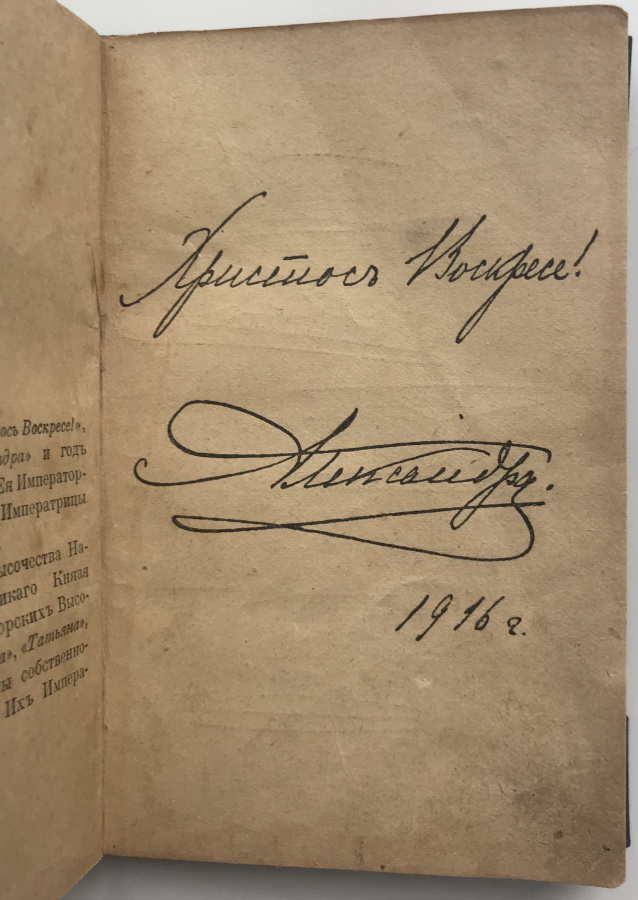 ось Воскресе!»,
ндра» и годъ
Ея Император-
Императрицы
ысочества На-
икаго Князя
орскихъ Высо-
а», «Татьяна»,
ны собственно-
Ихъ Импера-
Христосъ Воскресе!
Александра.
1916 г.